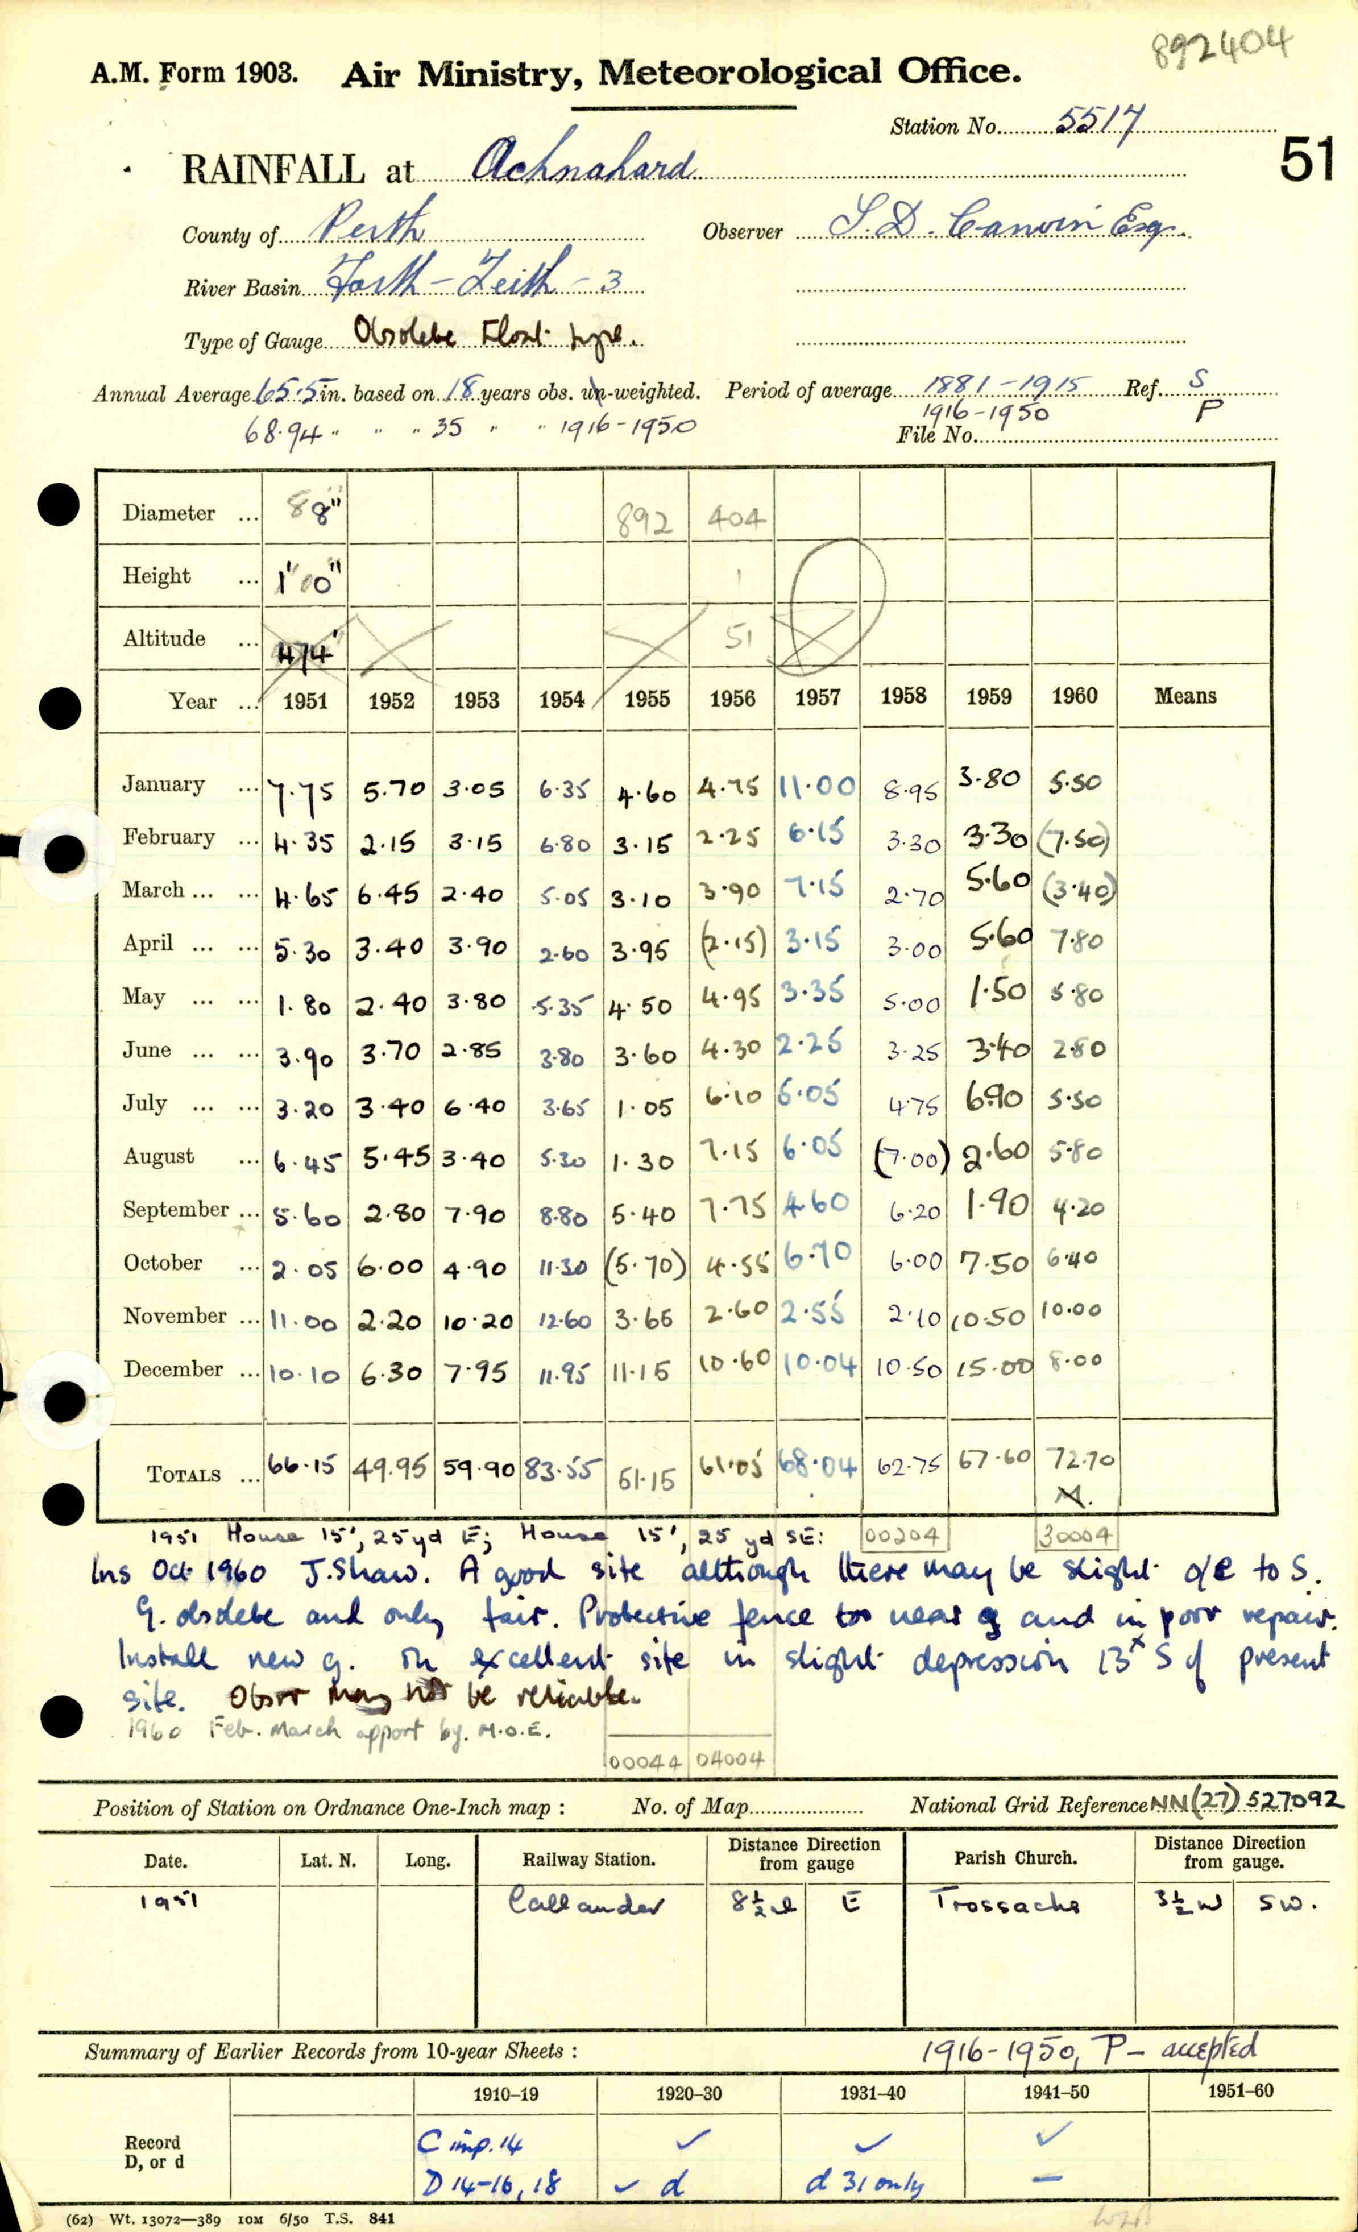 892404
A.M. Form 1903. Air Ministry, Meteorological Office.
Station No. 5517
51
RAINFALL at Achnahard
County of Perth Observer Esq.
River Basin Forth - Teith - 3
Type of Gauge Obsolete Float type.
Annual Average 65.5 in. based on 18 years obs. un-weighted. Period of average 1881-1915 Ref. S
68.94 " " " 35 " " 1916-1950 1916-1950 P
File No.
Diameter ... 8 8" 892 404
Height ... 1' 0" 1
Altitude ... 474' 51
Year ... 1951 1952 1953 1954 1955 1956 1957 1958 1959 1960 Means
January ... 7.75 5.70 3.05 6.35 4.60 4.75 11.00 8.95 3.80 5.50
February ... 4.35 2.15 3.15 6.80 3.15 2.25 6.15 3.30 3.30 (7.50)
March ... ... 4.65 6.45 2.40 5.05 3.10 3.90 7.15 2.70 5.60 (3.40)
April ... ... 5.30 3.40 3.90 2.60 3.95 (2.15) 3.15 3.00 5.60 7.80
May ... ... 1.80 2.40 3.80 5.35 4.50 4.95 3.35 5.00 1.50 5.80
June ... ... 3.90 3.70 2.85 3.80 3.60 4.30 2.25 3.25 3.40 2.80
July ... ... 3.20 3.40 6.40 3.65 1.05 6.10 5.05 4.75 6.90 5.50
August ... 6.45 5.45 3.40 5.30 1.30 7.15 6.05 (7.00) 2.60 5.80
September ... 5.60 2.80 7.90 8.80 5.40 7.75 4.60 6.20 1.90 4.20
October ... 2.05 6.00 4.90 11.30 (5.70) 4.55 6.70 6.00 7.50 6.40
November ... 11.00 2.20 10.20 12.60 3.65 2.60 2.55 2.10 10.50 10.00
December ... 10.10 6.30 7.95 11.95 11.15 10.60 10.04 10.50 15.00 8.00
TOTALS ... 66.15 49.95 59.90 83.55 51.15 61.05 68.04 62.75 67.60 72.70
M.
1951 House 15', 25 yd E; House 15', 25 yd SE: 00204 30004
Ins Oct 1960 J. Shaw. A good site although there may be slight o/e to S.
G. obsolete and only fair. Protective fence too near g and in poor repair.
Install new g. in excellent site in slight depression 13x S of present
site. Obsr may not be reliable.
1960 Feb. March apport by. M.O.E.
00044 04004
Position of Station on Ordnance One-Inch map : No. of Map National Grid Reference NN (27) 527092
Date. Lat. N. Long. Railway Station. Distance from Direction gauge Parish Church. Distance from Direction gauge.
1951 Callander 8½ E Trossachs 3½ SW.
Summary of Earlier Records from 10-year Sheets : 1916-1950, P - accepted
1910–19 1920–30 1931–40 1941–50 1951–60
Record C imp. 14 ✓ ✓ ✓
D, or d D 14-16, 18 ✓ d d 31 only –
(62) Wt. 13072—389 10M 6/50 T.S. 841